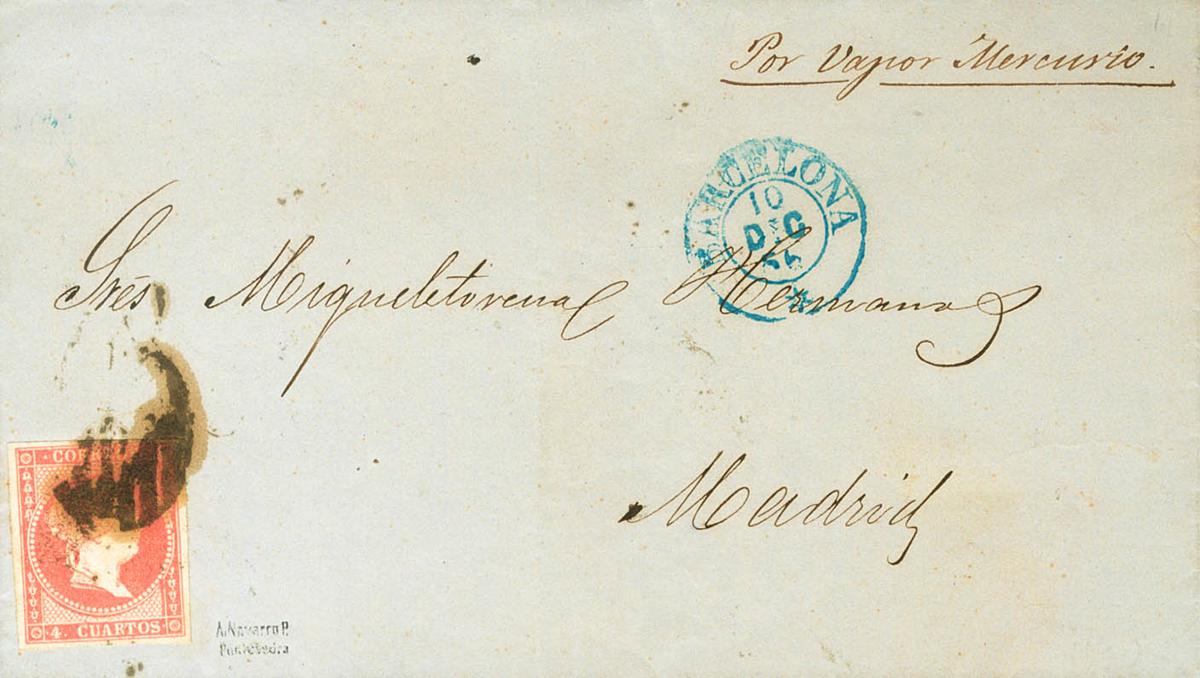 Por Vapor Mercurio.
BARCELONA
10
DIC
Sres Migueletorena Hermanos
Madrid
CORREOS
4. CUARTOS
A. Navarro P.
Pontevedra